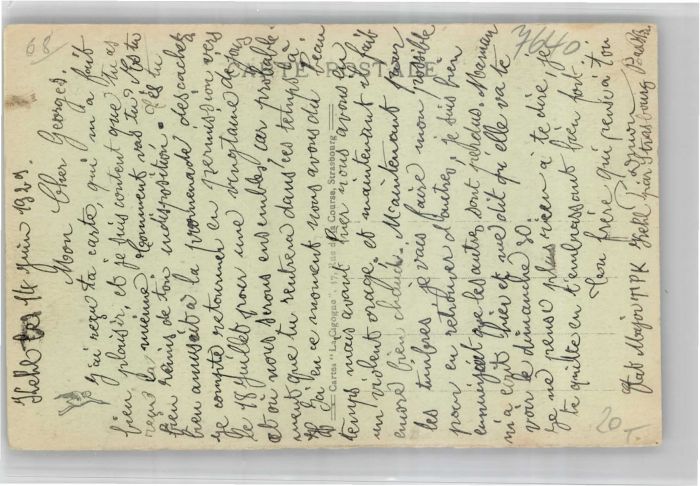 Kehl les 14 Juin 1929.
Mon Cher Georges.
J'ai reçu ta carte, qui m'a fait
bien plaisir, et je suis content que tu as
reçu la mienne. Comment vas tu? Est tu
bien remis de ton indisposition.
bien amusait à la promenade des cachets
je compte retourner en permission vers
le 18 juillet pour une vingtaine de jours
et où nous serons ensembles car probable-
ment que tu rentrera dans ces temps là.
Ici en ce moment nous avons du beau
temps mais avant hier nous avons eu
un violent orage et maintenant il fait
encore bien chaud. Maintenant pour
les timbres je vais faire mon possible
pour en retrouver d'autres, je suis bien
ennuyait que les autres sont perdus. Maman
m'a écrit hier et me dit qu'elle va te
voir le dimanche 30.
Je ne pense plus rien à te dire, je
te quitte en t'embrassant bien fort.
Ton frère qui pense à toi
Etat Major TIPK Kehl par Strasbourg
CARTE POSTALE
Cartes "La Cigogne", 17, Rue de la Course, Strasbourg
7640
68
20
T.